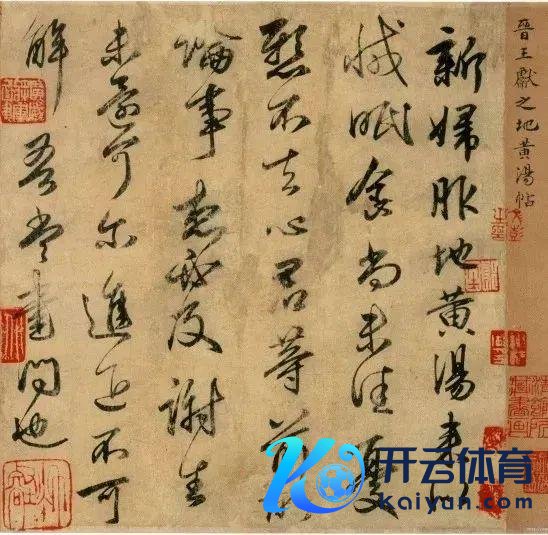 晉王獻之地黄湯帖
新婦服地黄湯來似
減眠食尚未佳憂
懸不去心君等前所
論事想必及謝生
未還可尔進退不可
解吾當書問也
开云体育
Kaiyun.com